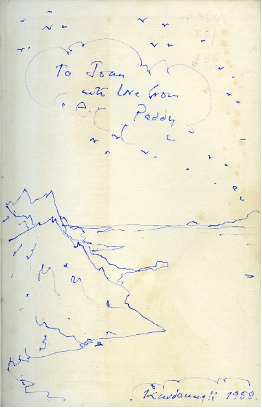 To Joan
with love from
Paddy
1958.